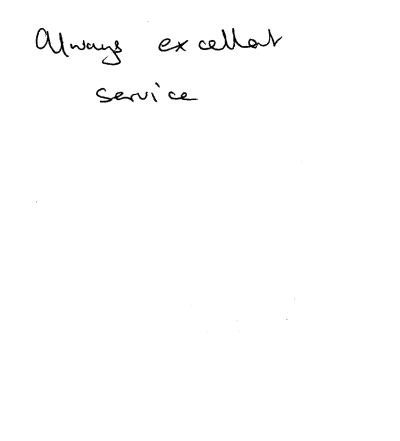 Always excellent
service